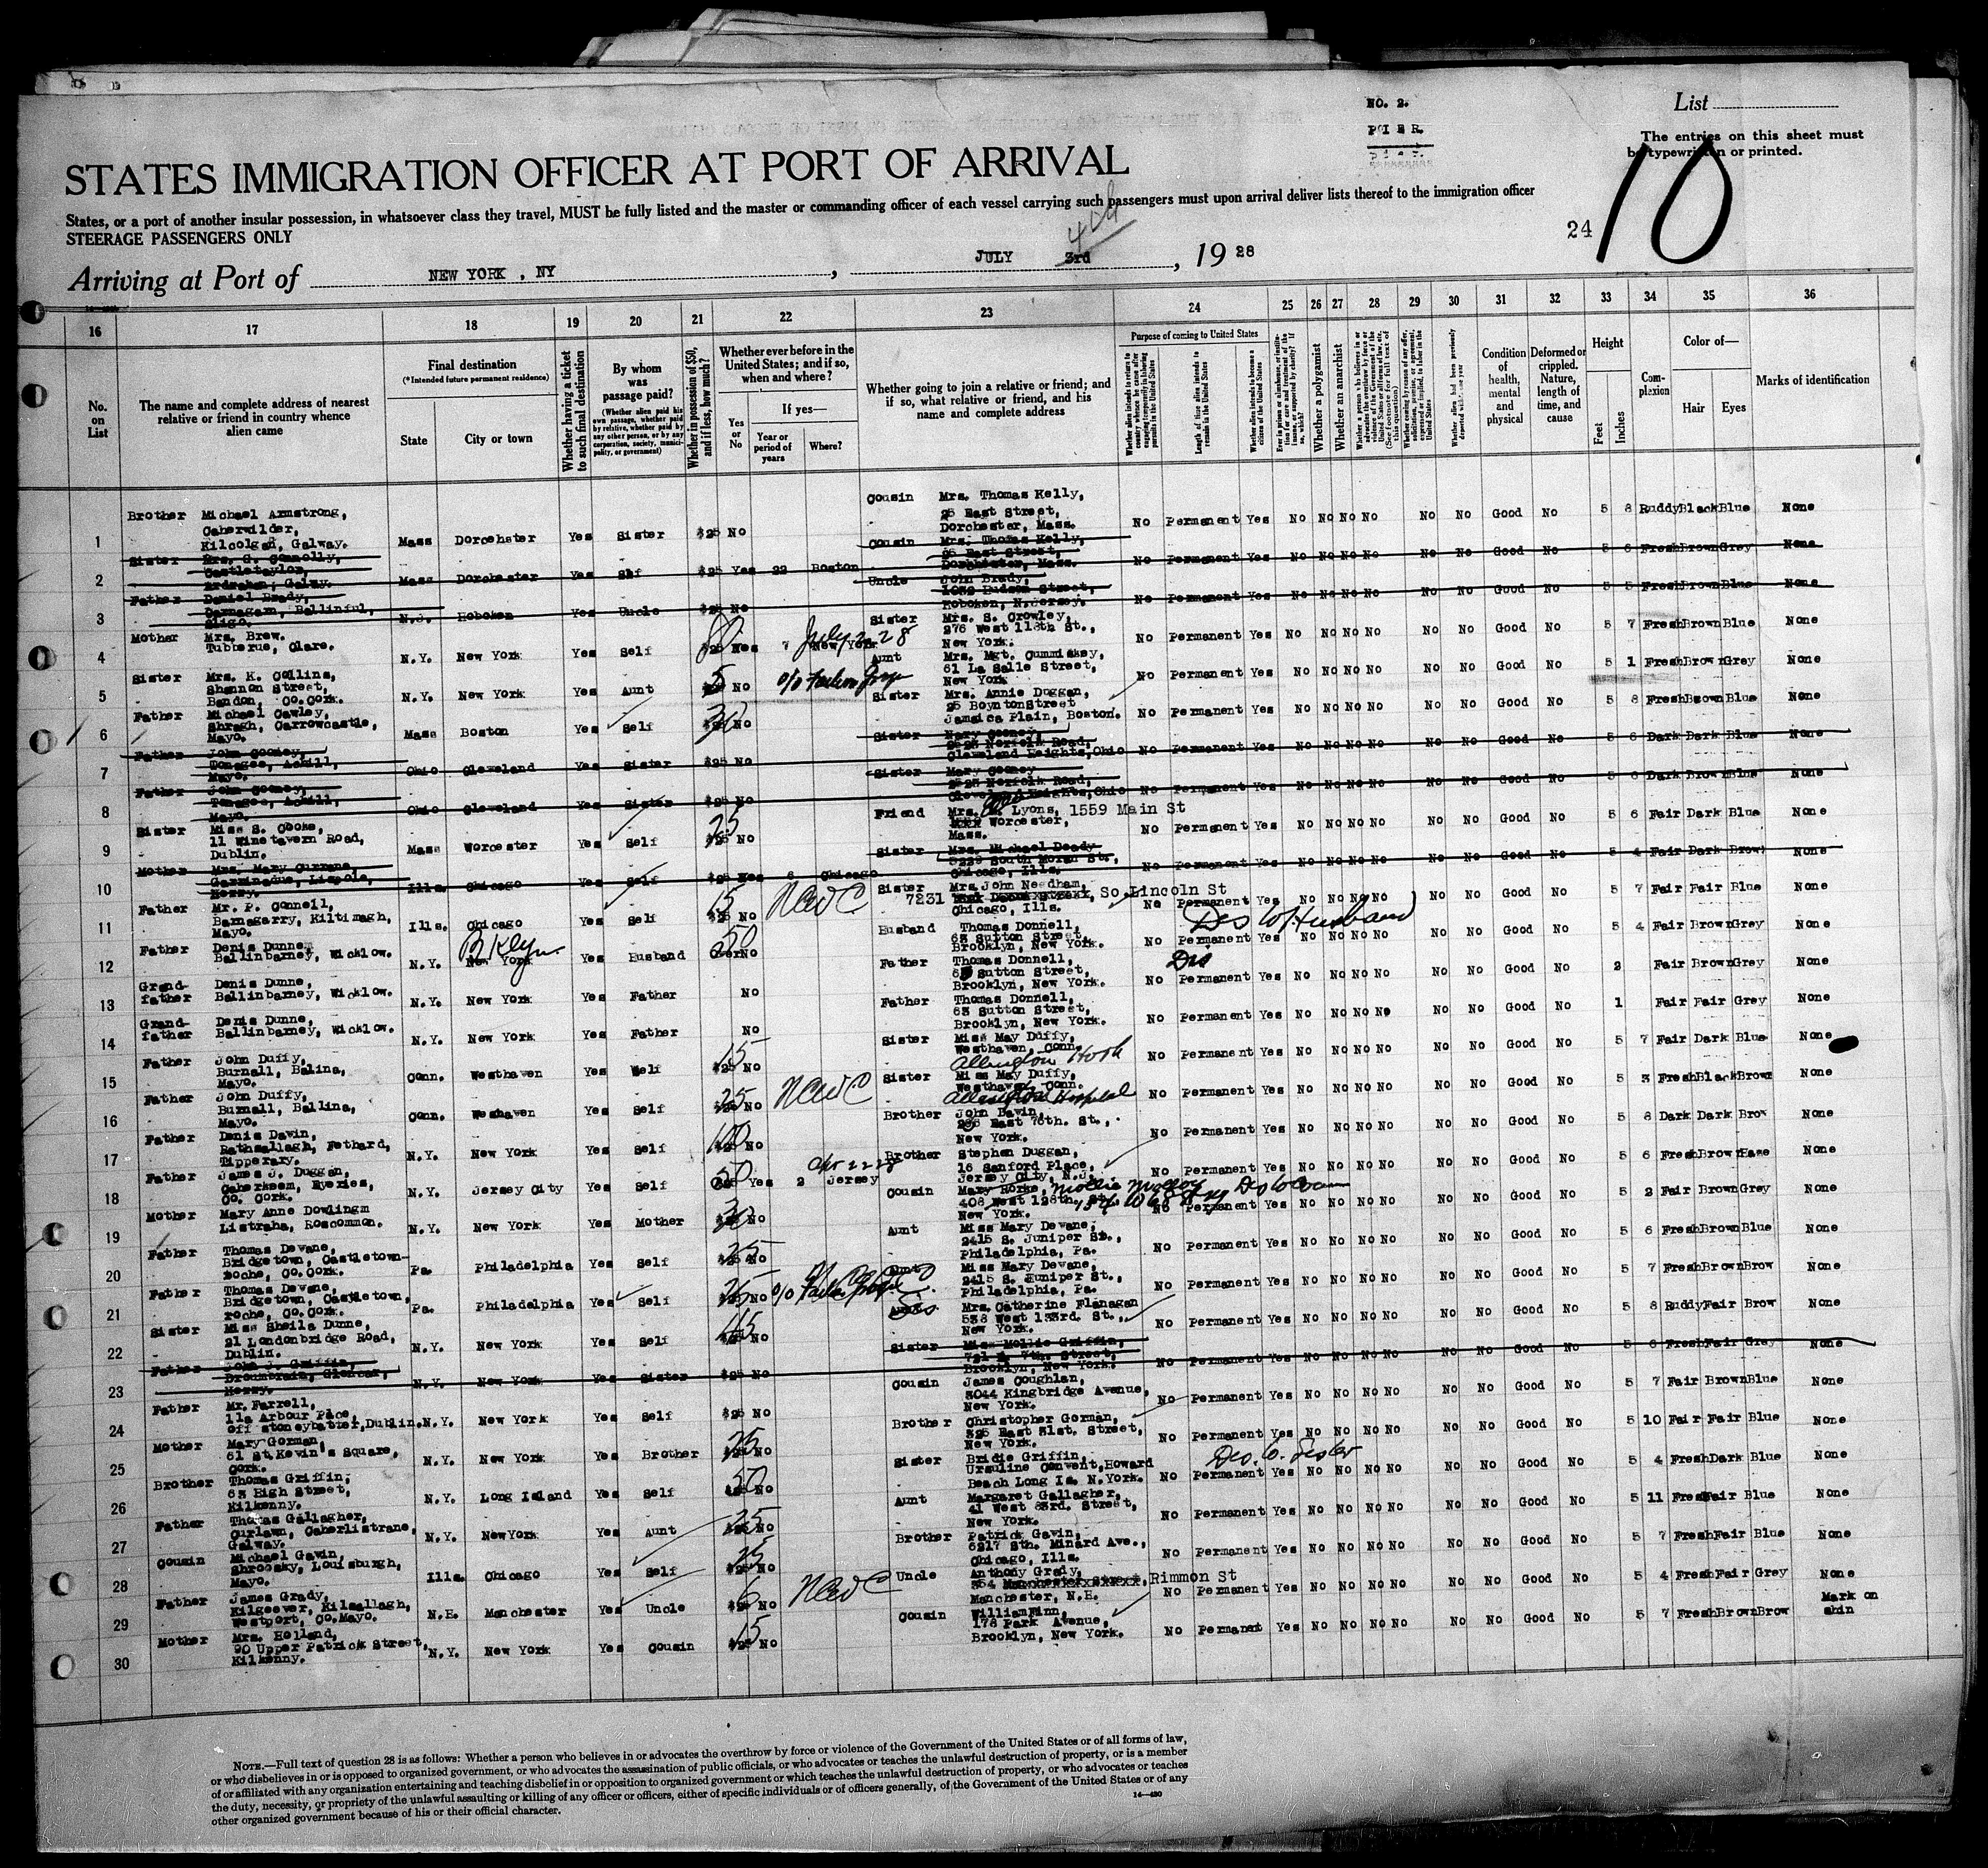 NO. 2.
PIER
List
The entries on this sheet must
be typewritten or printed.
10
STATES IMMIGRATION OFFICER AT PORT OF ARRIVAL
States, or a port of another insular possession, in whatsoever class they travel, MUST be fully listed and the master or commanding officer of each vessel carrying such passengers must upon arrival deliver lists thereof to the immigration officer
STEERAGE PASSENGERS ONLY
24
4th
Arriving at Port of NEW YORK , NY , JULY 3rd , 19 28
16 17 18 19 20 21 22 23 24 25 26 27 28 29 30 31 32 33 34 35 36
No. on List
The name and complete address of nearest relative or friend in country whence alien came
Final destination
(*Intended future permanent residence)
State
City or town
Whether having a ticket to such final destination
By whom was passage paid?
(Whether alien paid his own passage, whether paid by relative, whether paid by any other person, or by any corporation, society, municipality, or government)
Whether in possession of $50, and if less, how much?
Whether ever before in the United States; and if so, when and where?
Yes or No
If yes—
Year or period of years
Where?
Whether going to join a relative or friend; and if so, what relative or friend, and his name and complete address
Purpose of coming to United States
Length of time alien intends to remain in the United States
Whether alien intends to become a citizen of the United States
Whether a polygamist
Whether an anarchist
Condition of health, mental and physical
Deformed or crippled. Nature, length of time, and cause
Height
Feet
Inches
Complexion
Color of—
Hair
Eyes
Marks of identification
1 Brother Michael Armstrong, Caherwilder, Kilcolgan, Galway. Mass Dorchster Yes Sister $25 No Cousin Mrs. Thomas Kelly, 25 East Street, Dorchester, Mass. No Permanent Yes No No No No No No Good No 5 8 Ruddy Black Blue None
2 Sister Mrs. G. Connolly, Castletaylor, Ardrahan, Galway. Mass Dorchester Yes Slf $25 Yes 22 Boston Cousin Mrs. Thomas Kelly, 25 East Street, Dorchester, Mass. No Permanent Yes No No No No No No Good No 5 6 Fresh Brown Grey None
3 Father Daniel Brady, Ballinful, Sligo. N.J. Hoboken Yes Uncle $25 No Uncle John Brady, 1032 Hudson Street, Hoboken, N.Jersey. No Permanent Yes No No No No No No Good No 5 5 Fresh Brown Blue None
4 Mother Mrs. Brew. Tubberue, Clare. N.Y. New York Yes Self Yes New York Sister Mrs. S. Crowley, 276 West 118th St., New York. No Permanent Yes No No No No No No Good No 5 7 Fresh Brown Blue None
5 Sister Mrs. K. Collins, Shannon Street, Bandon, Co. Cork. N.Y. New York Yes Aunt 5 No Aunt Mrs. Mgt. Cummiskey, 61 La Salle Street, New York No Permanent Yes No No No No No No Good No 5 1 Fresh Brown Grey None
6 Father Michael Cawley, Shragh, Carrowcastle, Mayo. Mass Boston Yes Self 30 No Sister Mrs. Annie Duggan, 25 BoyntonStreet Jamaica Plain, Boston. No Permanent Yes No No No No No No Good No 5 8 Fresh Brown Blue None
7 Father John Cooney, Tonagee, Achill, Mayo. Ohio Cleveland Yes Sister $25 No Sister Mary Cooney, 2523 Norfolk Road, Cleveland Heights, Ohio No Permanent Yes No No No No No No Good No 5 6 Dark Dark Blue None
8 Father John Cooney, Tonagee, Achill, Mayo. Ohio Cleveland Yes Sister $25 No Sister Mary Cooney 2523 Norfolk Road, Cleveland Heights, Ohio No Permanent Yes No No No No No No Good No 5 6 Dark Brown Blue None
9 Sister Miss S. Cooke, 11 Winetavern Road, Dublin. Mass Worcester Yes Self 25 No Friend Mrs. Lyons, 1559 Main St Worcester, Mass. No Permanent Yes No No No No No No Good No 5 6 Fair Dark Blue None
10 Mother Mrs. Mary Currane, Garrinadue, Lispole, Kerry. Ills. Chicago Yes Self $25 Yes 6 Chicago Sister Mrs. Michael Deady 5239 South Moran St., Chicago, Ills. No Permanent Yes No No No No No No Good No 5 4 Fair Dark Brow None
11 Father Mr. P. Connell, Barnagarry, Kiltimagh, Mayo. Ills. Chicago Yes Self 15 No Sister Mrs. John Needham, 7231 So Lincoln St Chicago, Ills. No Permanent Yes No No No No No No Good No 5 7 Fair Fair Blue None
12 Father Denis Dunne, Ballinbarney, Wicklow. N.Y. New York BKlyn Yes Husband 50 No Husband Thomas Donnell, 63 Sutton Street, Brooklyn, New York. No Permanent Yes No No No No No No Good No 5 4 Fair Brown Grey None Des W/Husband
13 Grandfather Denis Dunne, Ballinbarney, Wicklow. N.Y. New York Yes Father No Father Thomas Donnell, 63 Sutton Street, Brooklyn, New York. No Permanent Yes No No No No No No Good No 2 Fair Brown Grey None
14 Grandfather Denis Dunne, Ballinbarney, Wicklow. N.Y. New York Yes Father No Father Thomas Donnell, 63 Sutton Street, Brooklyn, New York. No Permanent Yes No No No No No No Good No 1 Fair Fair Grey None
15 Father John Duffy, Burnall, Balina, Mayo. Conn. Westhaven Yes Self 15 No Sister Miss May Duffy, Westhaven, Conn. No Permanent Yes No No No No No No Good No 5 7 Fair Dark Blue None
16 Father John Duffy, Burnall, Ballina, Mayo. Conn. Weshaven Yes Self 25 No Sister Miss May Duffy, Westhaven, Conn. Hospital No Permanent Yes No No No No No No Good No 5 3 Fresh Black Brown None
17 Father Denis Davin, Rathsallagh, Fethard, Tipperary. N.Y. New York Yes Self 100 No Brother John Davin, 236 East 76th. St., New York. No Permanent Yes No No No No No No Good No 5 8 Dark Dark Brow None
18 Father James J. Duggan, Caherkeem, Eyeries, Co. Cork. N.Y. Jersey City Yes Self 50 Yes 2 Jersey Brother Stephen Duggan, 16 Sanford Place, Jersey City, N.J. No Permanent Yes No No No No No No Good No 5 6 Fresh Brown Haze None
19 Mother Mary Anne Dowlingm Listraha, Roscommon. N.Y. New York Yes Mother 30 No Cousin Mary Rorke, 408 West 128th. New York. Mollie Molloy No Permanent Yes No No No No No No Good No 5 2 Fair Brown Grey None
20 Father Thomas Devane, Bridgetown, Castletown-Roche, Co. Cork. Pa. Philadelphia Yes Self 25 No Aunt Miss Mary Devane, 2415 S. Juniper St., Philadelphia, Pa. No Permanent Yes No No No No No No Good No 5 6 Fresh Brown Blue None
21 Father Thomas Devane, Bridgetown, Castletown, roche, Co. Cork. Pa. Philadelphia Yes Self 25 No Aunt Miss Mary Devane, 2415 S. Juniper St., Philadelphia, Pa. No Permanent Yes No No No No No No Good No 5 7 Fresh Brown Brow None
22 Sister Miss Sheila Dunne, 21 Londonbridge Road, Dublin. N.Y. New York Yes Self 45 No Mrs. Catherine Flanagan 538 West 133rd. St., New York. No Permanent Yes No No No No No No Good No 5 8 Ruddy Fair Brow None
23 Father John J. Griffin, Droumbrain, Glencar, Kerry. N.Y. New York Yes Sister $25 No Sister Miss Mollie Griffin, 7th. Street, Brooklyn, New York. No Permanent Yes No No No No No No Good No 5 6 Fresh Fair Gray None
24 Father Mr. Farrell, 11a Arbour Place, off stoneybatter, Dublin. N.Y. New York Yes Self $25 No Cousin James Coughlan, 3044 Kingbridge Avenue, New York. No Permanent Yes No No No No No No Good No 5 7 Fair Brown Blue None
25 Mother Mary Gorman, 61 St. Kevin's Square, Cork. N.Y. New York Yes Brother 25 No Brother Christopher Gorman, 325 East 31st. Street, New York. No Permanent Yes No No No No No No Good No 5 10 Fair Fair Blue None
26 Brother Thomas Griffin, 63 High Street, Kilkenny. N.Y. Long Island Yes Self 50 No Sister Bridie Griffin, Ursuline Convent, Howard Beach Long Is. N.York. No Permanent Yes No No No No No No Good No 5 4 Fresh Dark Blue None Des. W. Sister
27 Father Thomas Gallagher, Curlawn, Caherlistrane, Galway. N.Y. NewYork Yes Aunt 25 No Aunt Margaret Gallagher, 41 West 83rd. Street, New York. No Permanent Yes No No No No No No Good No 5 11 Fresh Fair Blue None
28 Cousin Michael Gavin, Shroosky, Louisburgh, Mayo. Ills. Chicago Yes Self 25 No Brother Patrick Gavin, 6217 Sth. Minard Ave., Chicago, Ills. No Permanent Yes No No No No No No Good No 5 7 Fresh Fair Blue None
29 Father James Grady, Kilgeever, Kilsallagh, Westport, Co. Mayo. N.H. Manchester Yes Uncle 6 No Uncle Anthony Grady, 354 Rimmon St Manchester, N.H. No Permanent Yes No No No No No No Good No 5 4 Fresh Fair Grey None
30 Mother Mrs. Holland, 90 Upper Patrick Street, Kilkenny. N.Y. New York Yes Cousin 15 No Cousin WilliamFinn, 178 Park Avenue, Brooklyn, New York. No Permanent Yes No No No No No No Good No 5 7 Fresh Brown Brow Mark on shin
NOTE.—Full text of question 28 is as follows: Whether a person who believes in or advocates the overthrow by force or violence of the Government of the United States or of all forms of law,
or who disbelieves in or is opposed to organized government, or who advocates the assassination of public officials, or who advocates or teaches the unlawful destruction of property, or is a member
of or affiliated with any organization entertaining and teaching disbelief in or opposition to organized government or which teaches the unlawful destruction of property, or who advocates or teaches
the duty, necessity, or propriety of the unlawful assaulting or killing of any officer or officers, either of specific individuals or of officers generally, of the Government of the United States or of any
other organized government because of his or their official character.
14—430